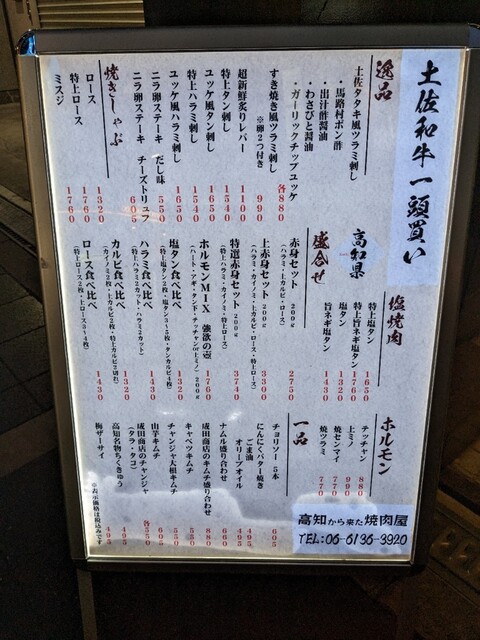 土佐和牛一頭買い
逸品
土佐タタキ風ツラミ刺し
・馬路村ポン酢
・出汁酢醤油
・わさびと醤油
・ガーリックチップユッケ
各880
すき焼き風ツラミ刺し
※卵2つ付き 990
超新鮮炙りレバー 1100
特上タン刺し 1540
ユッケ風タン刺し 1650
特上ハラミ刺し 1540
ユッケ風ハラミ刺し 1650
ニラ卵ステーキ だし味 550
ニラ卵ステーキ チーズトリュフ 605
焼きしゃぶ
ロース 1320
特上ロース 1760
ミスジ 1760
高知県
塩焼肉
特上塩タン 1650
特上旨ネギ塩タン 1760
塩タン 1320
旨ネギ塩タン 1430
盛合せ
赤身セット 200g 2750
(ハラミ・上カルビ・ロース)
上赤身セット 200g 3300
(ハラミ・カイノミ・上カルビ・ロース・特上ロース)
特選赤身セット 200g 3740
(特上ハラミ・カイノミ・特上ロース)
ホルモンMIX 強欲の壺 1760
塩タン食べ比べ 1320
ハラミ食べ比べ 1430
(特上ハラミ2カット・ハラミ2カット)
カルビ食べ比べ 1320
ロース食べ比べ 1430
(特上ロース2枚・上ロース3〜4枚)
ホルモン
テッチャン 880
上ミノ 990
焼センマイ 770
焼ツラミ 770
一品
チョリソー5本 605
にんにくバター焼き
ごま油 495
オリーブオイル 495
ナムル盛り合わせ 660
成田商店のキムチ盛り合わせ 880
キャベツキムチ 550
チャンジャ大根キムチ 550
山芋キムチ 605
成田商店のチャンジャ
(タラ・タコ) 各550
高知名物ちくきゅう 495
梅ザーサイ 495
※表示価格は税込みです
高知から来た焼肉屋
TEL:06-6136-3920